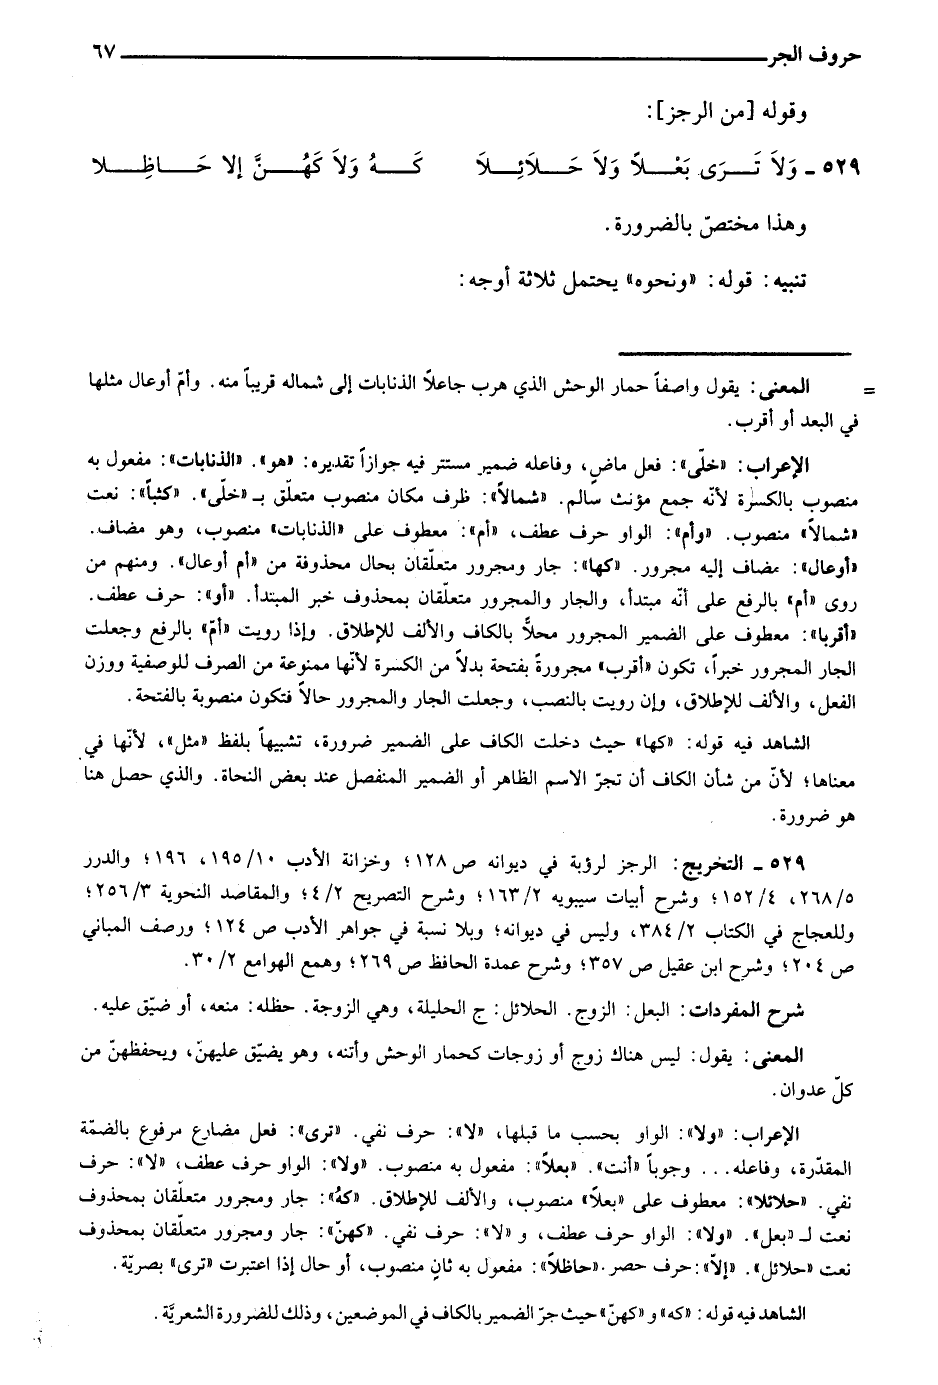 حروف الجر ٦٧
وقوله [من الرجز]:
٥٢٩ ـ وَلاَ تَـــرَى بَعْـــلاً وَلاَ حَـــلاَئِـــلاَ كَـــهُ وَلاَ كَهُـــنَّ إلا حَـــاظِـــلا
وهذا مختصّ بالضرورة.
تنبيه: قوله: «ونحوه» يحتمل ثلاثة أوجه:
= المعنى: يقول واصفاً حمار الوحش الذي هرب جاعلاً الذنابات إلى شماله قريباً منه. وأمّ أوعال مثلها
في البعد أو أقرب.
الإعراب: «خلّى»: فعل ماضٍ، وفاعله ضمير مستتر فيه جوازاً تقديره: «هو». «الذنابات»: مفعول به
منصوب بالكسرة لأنّه جمع مؤنث سالم. «شمالاً»: ظرف مكان منصوب متعلّق بـ «خلّى». «كثباً»: نعت
«شمالاً» منصوب. «وأم»: الواو حرف عطف، «أم»: معطوف على «الذنابات» منصوب، وهو مضاف.
«أوعال»: مضاف إليه مجرور. «كها»: جار ومجرور متعلّقان بحال محذوفة من «أم أوعال». ومنهم من
روى «أم» بالرفع على أنّه مبتدأ، والجار والمجرور متعلّقان بمحذوف خبر المبتدأ. «أو»: حرف عطف.
«أقربا»: معطوف على الضمير المجرور محلاًّ بالكاف والألف للإطلاق. وإذا رويت «أمّ» بالرفع وجعلت
الجار المجرور خبراً، تكون «أقرب» مجرورةً بفتحة بدلاً من الكسرة لأنها ممنوعة من الصرف للوصفية ووزن
الفعل، والألف للإطلاق، وإن رويت بالنصب، وجعلت الجار والمجرور حالاً فتكون منصوبة بالفتحة.
الشاهد فيه قوله: «كها» حيث دخلت الكاف على الضمير ضرورة، تشبيهاً بلفظ «مثل»، لأنّها في
معناها؛ لأنّ من شأن الكاف أن تجرّ الاسم الظاهر أو الضمير المنفصل عند بعض النحاة. والذي حصل هنا
هو ضرورة.
٥٢٩ ـ التخريج: الرجز لرؤبة في ديوانه ص ١٢٨؛ وخزانة الأدب ١٩٥/١٠، ١٩٦؛ والدرر
٢٦٨/٥، ١٥٢/٤؛ وشرح أبيات سيبويه ١٦٣/٢؛ وشرح التصريح ٤/٢؛ والمقاصد النحوية ٢٥٦/٣؛
وللعجاج في الكتاب ٣٨٤/٢، وليس في ديوانه؛ وبلا نسبة في جواهر الأدب ص ١٢٤؛ ورصف المباني
ص ٢٠٤؛ وشرح ابن عقيل ص ٣٥٧؛ وشرح عمدة الحافظ ص ٢٦٩؛ وهمع الهوامع ٣٠/٢.
شرح المفردات: البعل: الزوج. الحلائل: ج الحليلة، وهي الزوجة. حظله: منعه، أو ضيّق عليه.
المعنى: يقول: ليس هناك زوج أو زوجات كحمار الوحش وأتنه، وهو يضيّق عليهنّ، ويحفظهنّ من
كلّ عدوان.
الإعراب: «ولا»: الواو بحسب ما قبلها، «لا»: حرف نفي. «ترى»: فعل مضارع مرفوع بالضمّة
المقدّرة، وفاعله... وجوباً «أنت». «بعلاً»: مفعول به منصوب. «ولا»: الواو حرف عطف، «لا»: حرف
نفي. «حلائلا»: معطوف على «بعلاً» منصوب، والألف للإطلاق. «كهُ»: جار ومجرور متعلّقان بمحذوف
نعت لـ «بعل». «ولا»: الواو حرف عطف، و «لا»: حرف نفي. «كهنّ»: جار ومجرور متعلّقان بمحذوف
نعت «حلائل». «إلاّ»: حرف حصر. «حاظلاً»: مفعول به ثانٍ منصوب، أو حال إذا اعتبرت «ترى» بصريّة.
الشاهد فيه قوله: «كه» و «كهنّ» حيث جرّ الضمير بالكاف في الموضعين، وذلك للضرورة الشعريَّة.